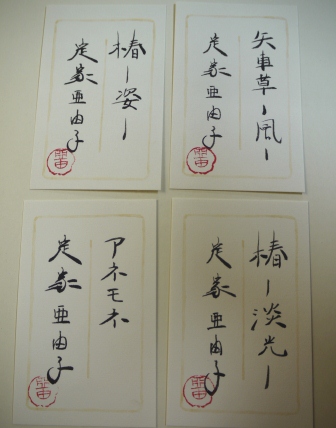 椿ー姿ー
定家亜由子
矢車草ー風ー
定家亜由子
アネモネ
定家亜由子
椿ー淡光ー
定家亜由子